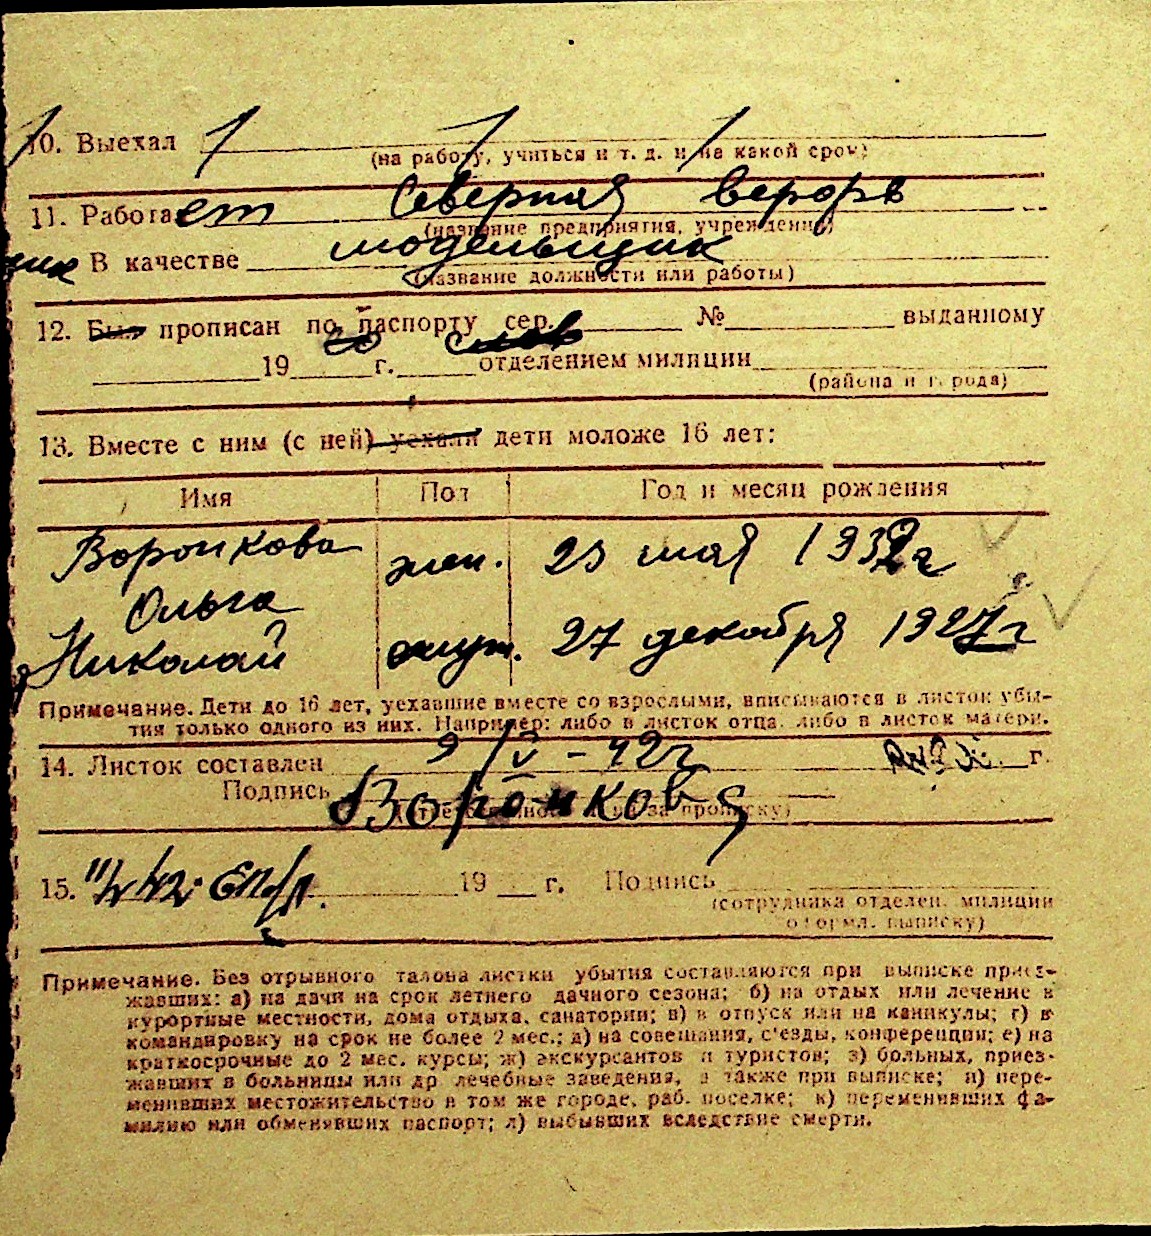 10. Выехал
(на работу, учиться и т. д. и на какой срок)
11. Работает Северная верфь
(название предприятия, учреждения)
щик В качестве модельщик
(название должности или работы)
12. Был прописан по паспорту сер. № выданному
со слов
19 г. отделением милиции
(района и города)
13. Вместе с ним (с ней) уехали дети моложе 16 лет:
Имя Пол Год и месяц рождения
Воронкова жен. 23 мая 1932 г
Ольга
Николай муж. 27 декабря 1927 г
Примечание. Дети до 16 лет, уехавшие вместе со взрослыми, вписываются в листок убы-
тия только одного из них. Например: либо в листок отца, либо в листок матери.
14. Листок составлен 9/V - 42 г г.
Подпись Воронкова
(ответственного за прописку)
15. 11/V 42. 19 г. Подпись
(сотрудника отделен. милиции
оформл. выписку)
Примечание. Без отрывного талона листки убытия составляются при выписке приез-
жавших: а) на дачи на срок летнего дачного сезона; б) на отдых или лечение в
курортные местности, дома отдыха, санатории; в) в отпуск или на каникулы; г) в
командировку на срок не более 2 мес.; д) на совещания, с'езды, конференции; е) на
краткосрочные до 2 мес. курсы; ж) экскурсантов и туристов; з) больных, приез-
жавших в больницы или др лечебные заведения, а также при выписке; и) пере-
менивших местожительство в том же городе, раб. поселке; к) переменивших фа-
милию или обменявших паспорт; л) выбывших вследствие смерти.